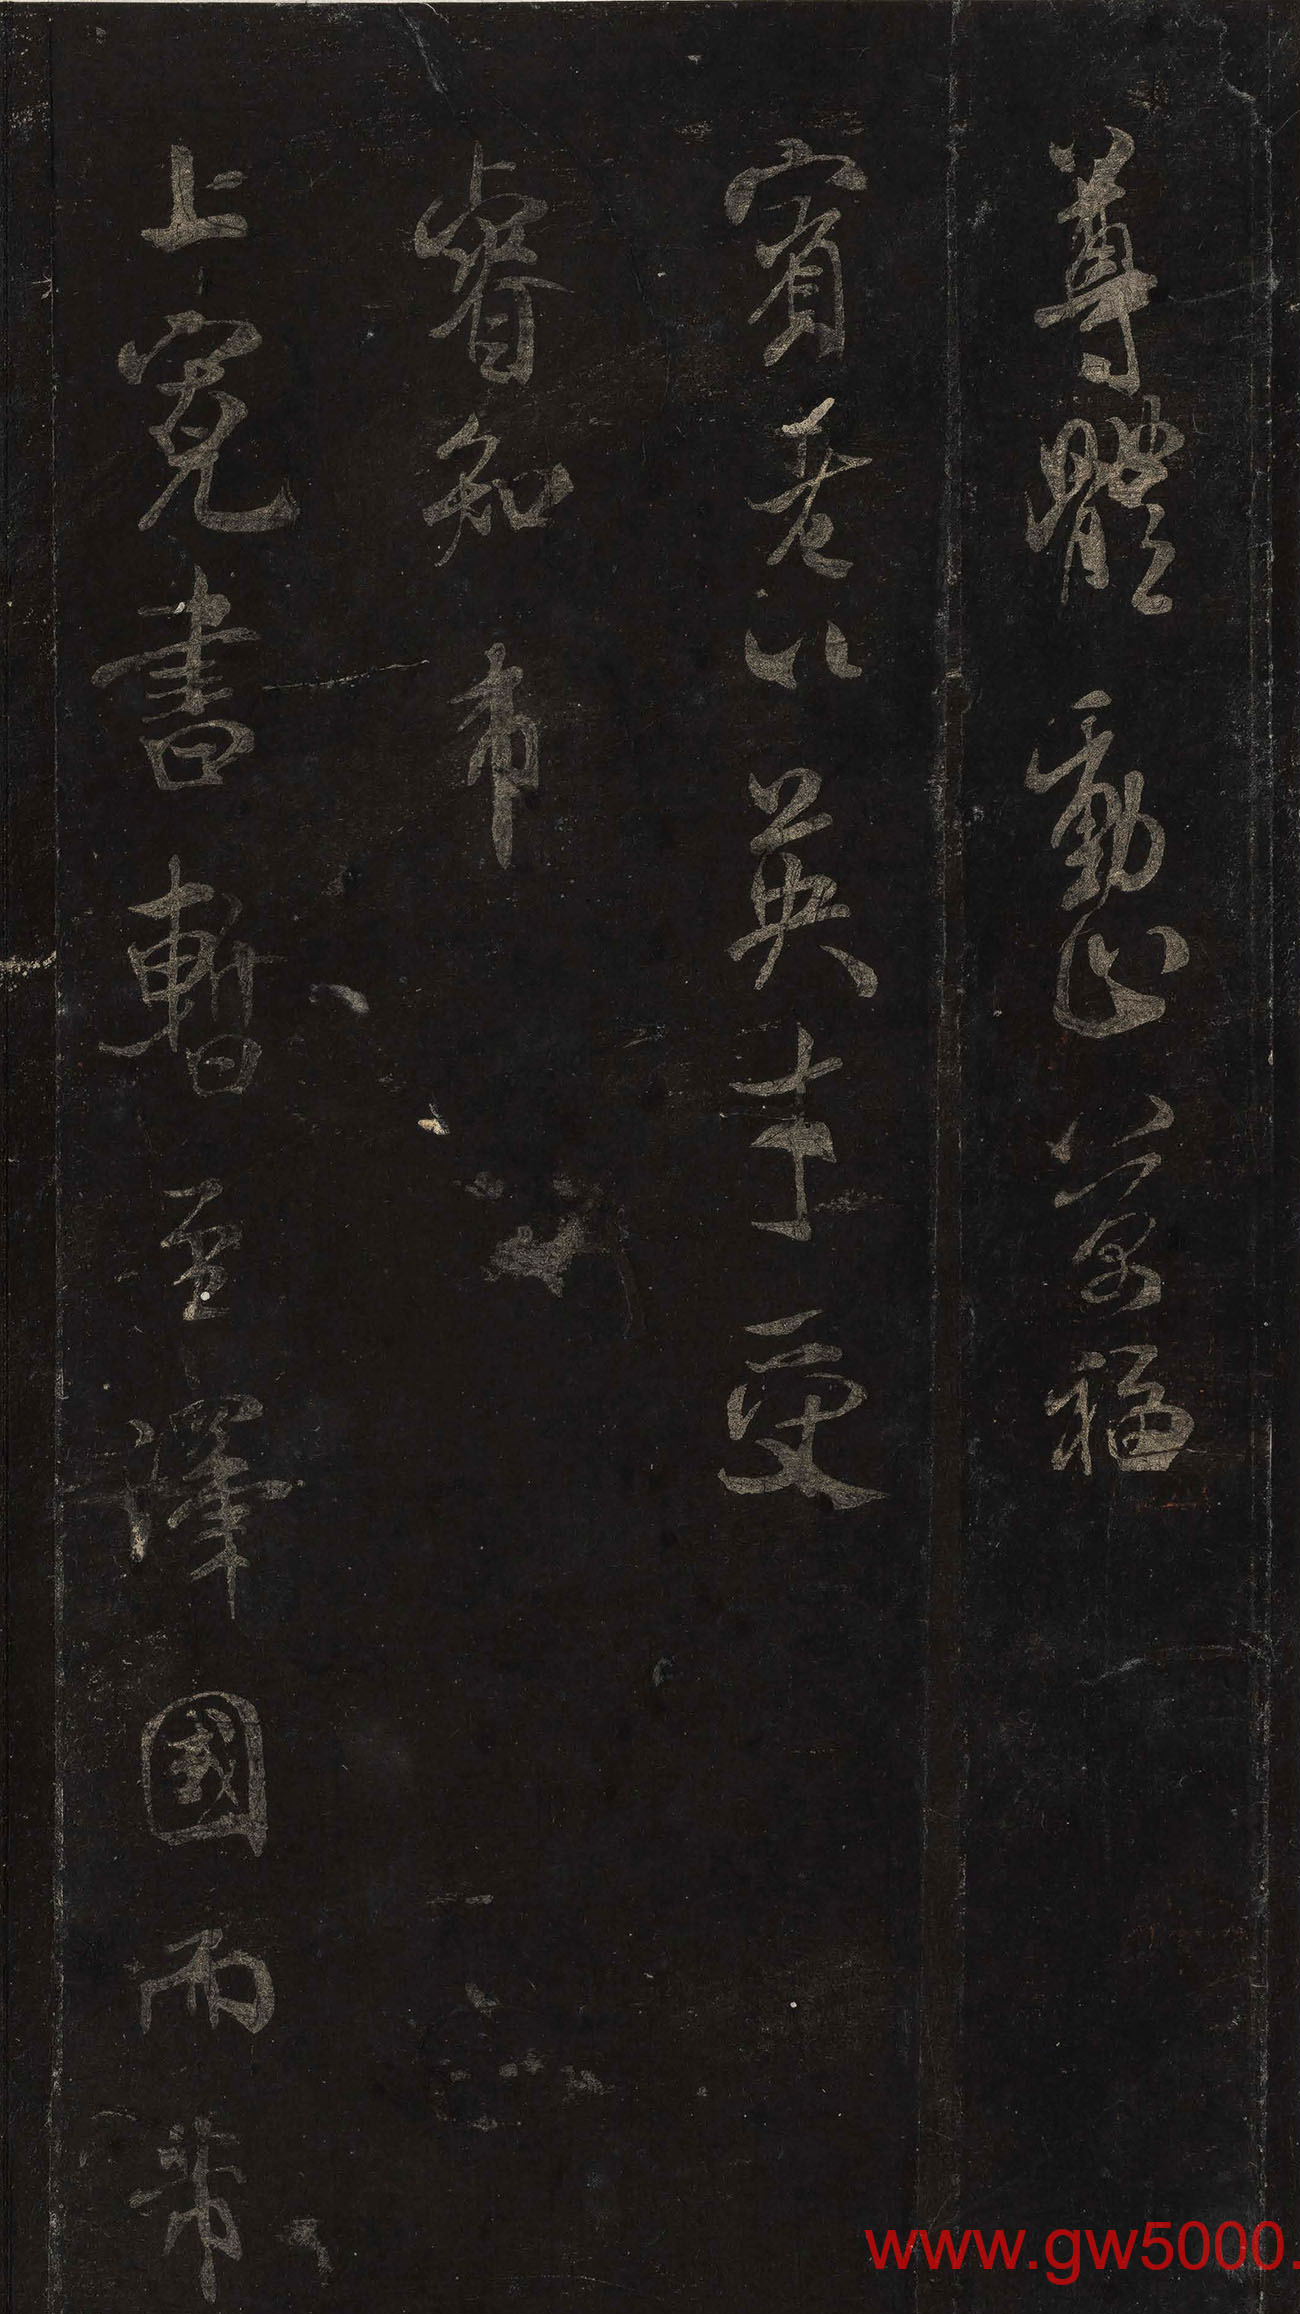 尊體動止萬福
賓老以英才受
睿知市
上寬書暫至澤國而業
www.gw5000.